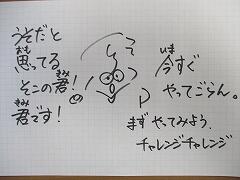 うそだと
思ってる
そこの君!
君です!
今すぐ
やってごらん。
まずやってみよう.
チャレンジチャレンジ